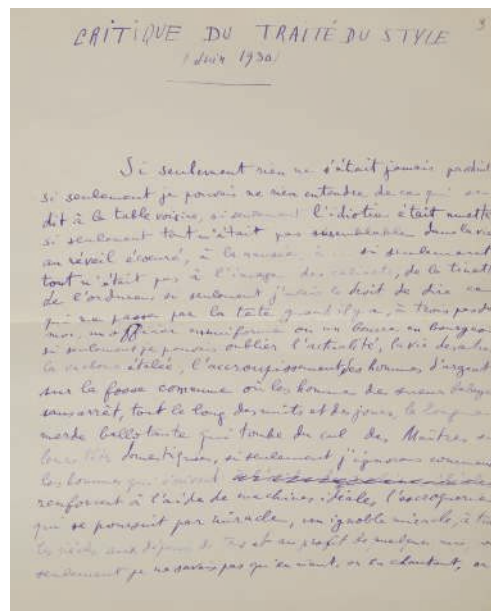 CRITIQUE DU TRAITÉ DU STYLE
(Juin 1930)
3
Si seulement rien ne s'était jamais produit
si seulement je pouvais ne rien entendre de ce qui se
dit à la table voisine, si seulement l'idiotie était muette
si seulement tout n'était pas dans la vie
au réveil écœuré, à la si seulement
tout n'était pas à l'image des de la
de l'ordure si seulement j'avais le droit de dire ce
qui me passe par la tête quand il y a, à trois pas de
moi, un officier en uniforme ou un en bourgeois
si seulement je pouvais oublier l'actualité, la vie des autres
la étalée, l'accroupissement des hommes d'argent
sur la fosse commune où les hommes de
sans arrêt, tout le long des nuits et des jours, la longue
merde ballotante qui tombe du cul des Maîtres
leurs domestiques, si seulement j'ignorais comment
les hommes qui écrivent
renforcent à l'aide de machines idéales l'escroquerie
qui se poursuit par miracle, un ignoble miracle, à
les siècles aux dépens de et au profit de quelques uns,
seulement je ne savais pas qu'en riant, ou en chantant, ou